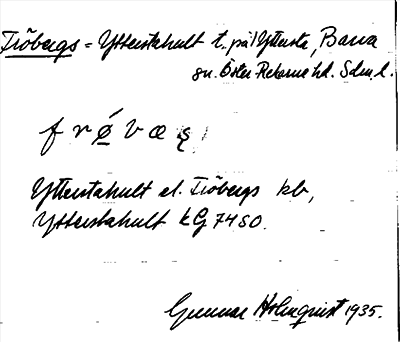 Fröbergs = Ytterstahult t. på Yttersta, Barva
sn. Öster-Rekarne hd. Sdm. l.
f r ø v æ
Ytterstahult el. Fröbergs kb,
Ytterstahult kG 7450.
Gunnar Holmquist 1935.